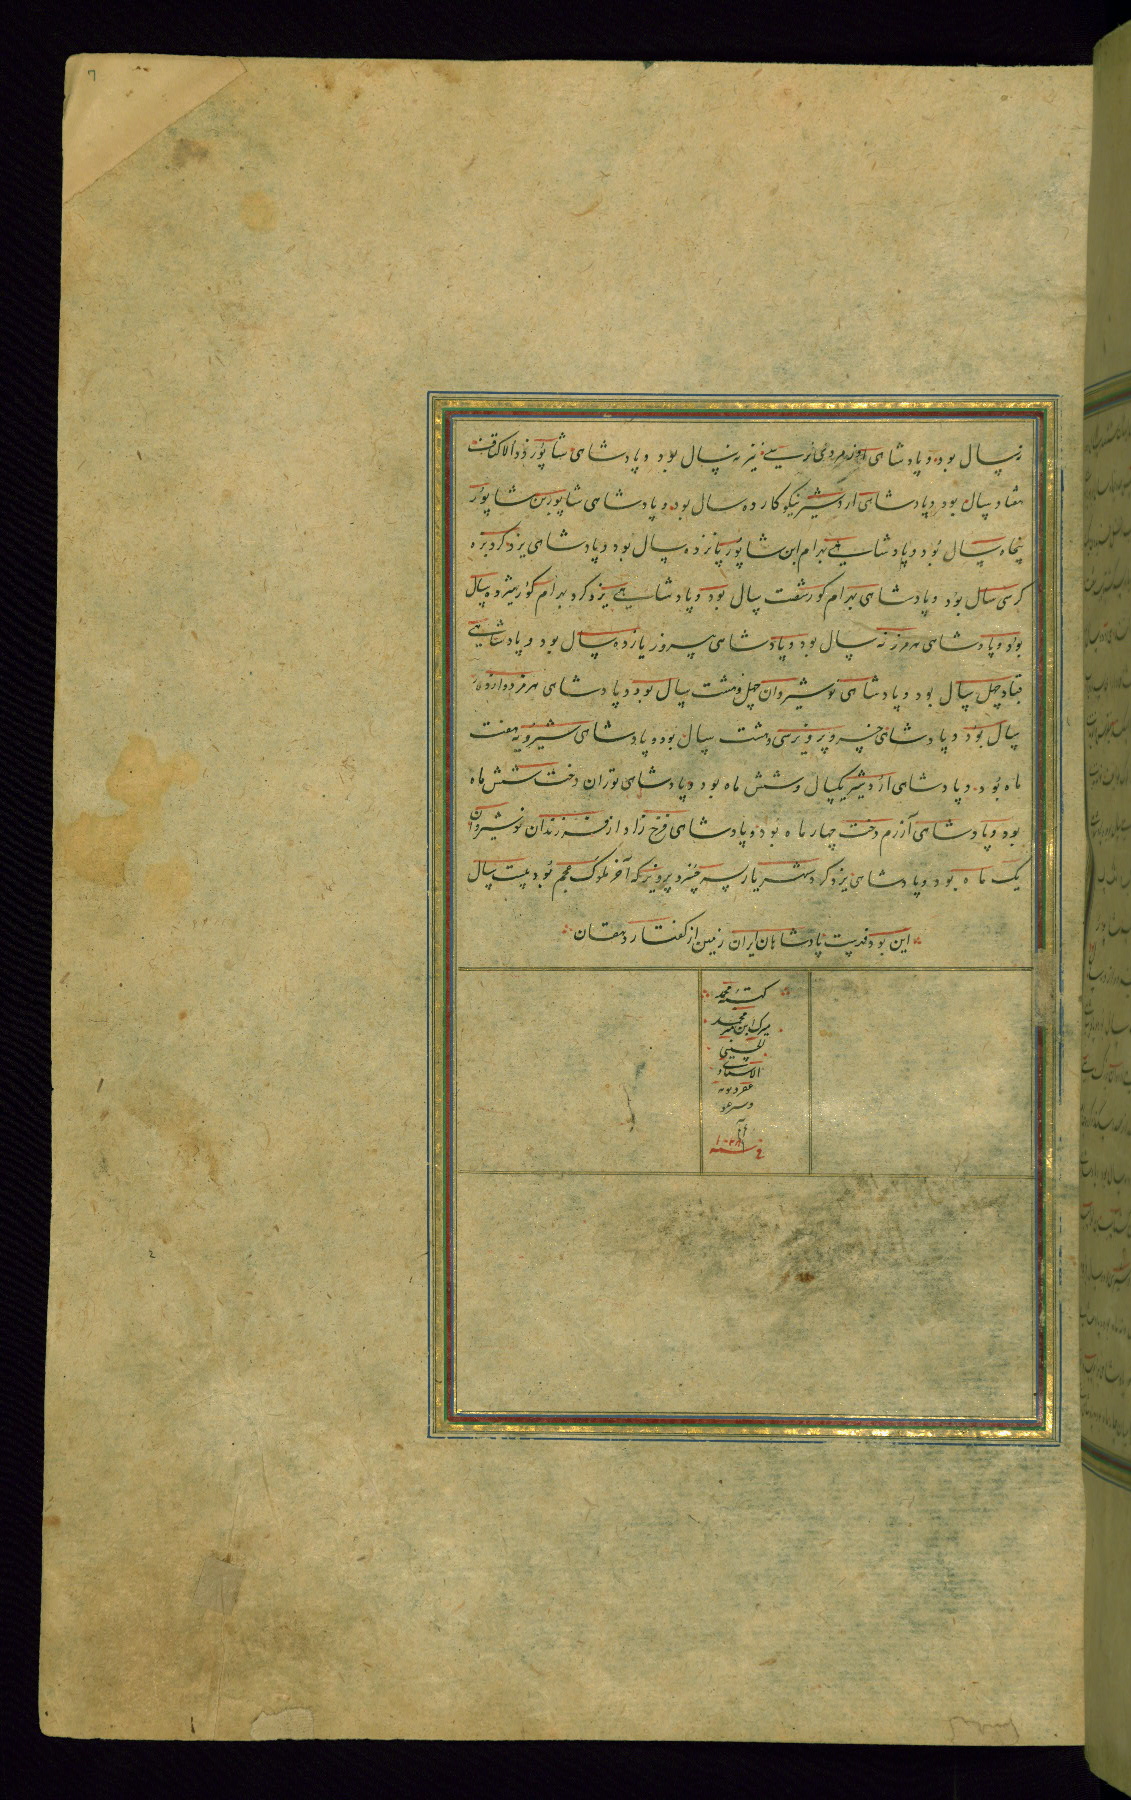 نه سال بود و پادشاهی اورمزد نرسی نیز نه سال بود و پادشاهی شاپور ذوالاکتاف
هفتاد سال بود و پادشاهی اردشیر نیکوکار ده سال بود و پادشاهی شاپور بن شاپور
پنجاه سال بود و پادشاهی بهرام ابن شاپور پانزده سال بود و پادشاهی یزدگرد بزه
گر سی سال بود و پادشاهی بهرام گور شصت سال بود و پادشاهی یزدگرد بهرام گور هیژده سال
بود و پادشاهی هرمز نه سال بود و پادشاهی پیروز یازده سال بود و پادشاهی
قباد چهل سال بود و پادشاهی نوشیروان چهل و هشت سال بود و پادشاهی هرمز دوازده
سال بود و پادشاهی خسرو پرویز سی و هشت سال بود و پادشاهی شیرویه هفت
ماه بود و پادشاهی اردشیر یکسال و شش ماه بود و پادشاهی توران دخت شش ماه
بود و پادشاهی آزرم دخت چهار ماه بود و پادشاهی فرخ زاد از فرزندان نوشیروان
یک ماه بود و پادشاهی یزدگرد شهریار پسر خسرو پرویز که آخر ملوک عجم بود بیست سال
این بود مدت پادشاهان ایران زمین از گفتار دهقان
کتبه محمد
میرک ابن محمد
الحسینی
الاستادی
غفر ذنوبه
و ستر عیوبه
فی سنه ۱۰۲۸